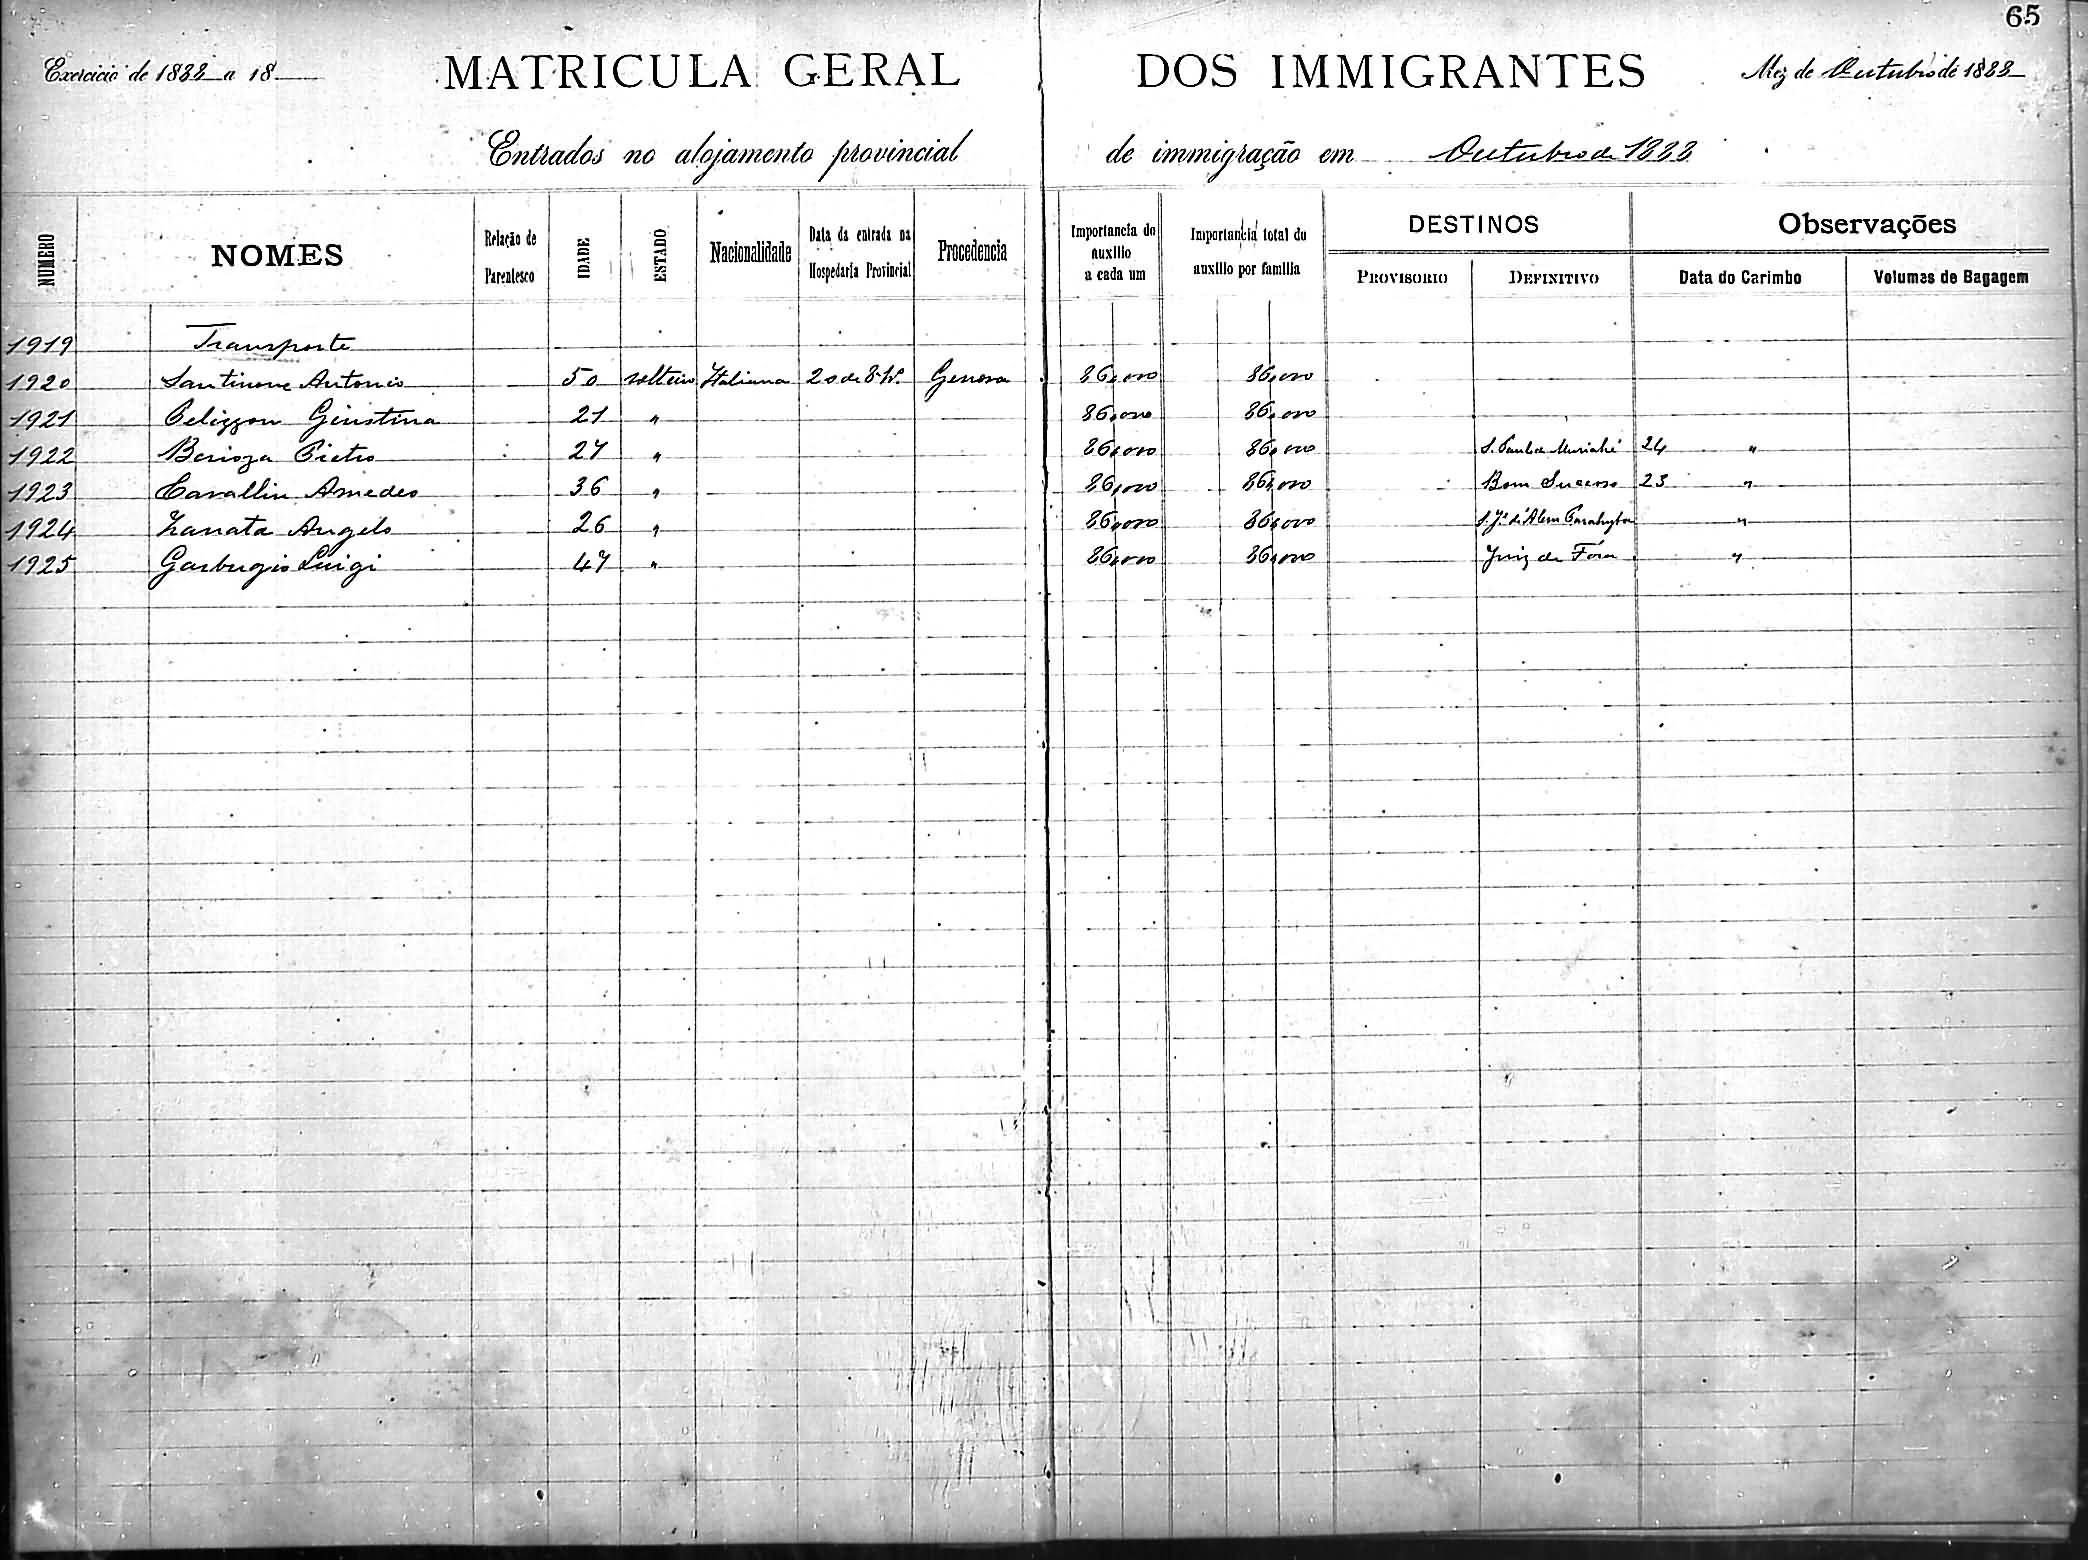 65
Exercicio de 1888 a 18 MATRICULA GERAL DOS IMMIGRANTES Mez de Outubro de 1888
Entrados no alojamento provincial de immigração em Outubro de 1888
NUMERO NOMES Relação de Parentesco IDADE ESTADO Nacionalidade Data da entrada na Hospedaria Provincial Procedencia Importancia do auxilio a cada um Importancia total do auxilio por familia DESTINOS Observações
PROVISORIO DEFINITIVO Data do Carimbo Volumes de Bagagem
1919 Transporte
1920 Antonio 50 solteiro Italiana 20 de Genova 86,000 86,000
1921 Pelizzon Giustina 21 " 86,000 86,000
1922 Pietro 27 " 86,000 86,000 S. Paulo de Muriahé 24 "
1923 Cavallin Amedeo 36 " 86,000 86,000 Bom Sucesso 23 "
1924 Zanata Angelo 26 " 86,000 86,000 S. Jé d'Alem Parahyba "
1925 Garbugio Luigi 47 " 86,000 86,000 Juiz de Fóra "